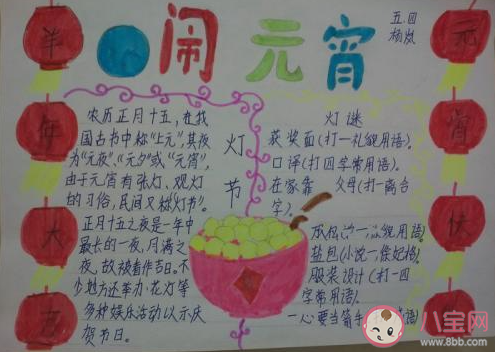 闹元宵
五.四
杨岚
羊
年
大
吉
元
宵
快
灯
节
农历正月十五,在我
国古书中称“上元”,其夜
为“元夜”、“元夕”或“元宵”,
由于元宵有张灯、观灯
的习俗,民间又称“灯节”。
正月十五之夜是一年中
最长的一夜,月满之
夜,故被看作吉日。不
少地方还举办花灯等
多种娱乐活动以示庆
贺节日。
灯谜
获奖面(打一礼貌用语)。
口译(打四字常用语)。
在家靠 父母(打一离合
字)。
盐包(小说一
服装设计(打一四
字常用语)。
一心要当箭手
八宝网
www.8bb.com